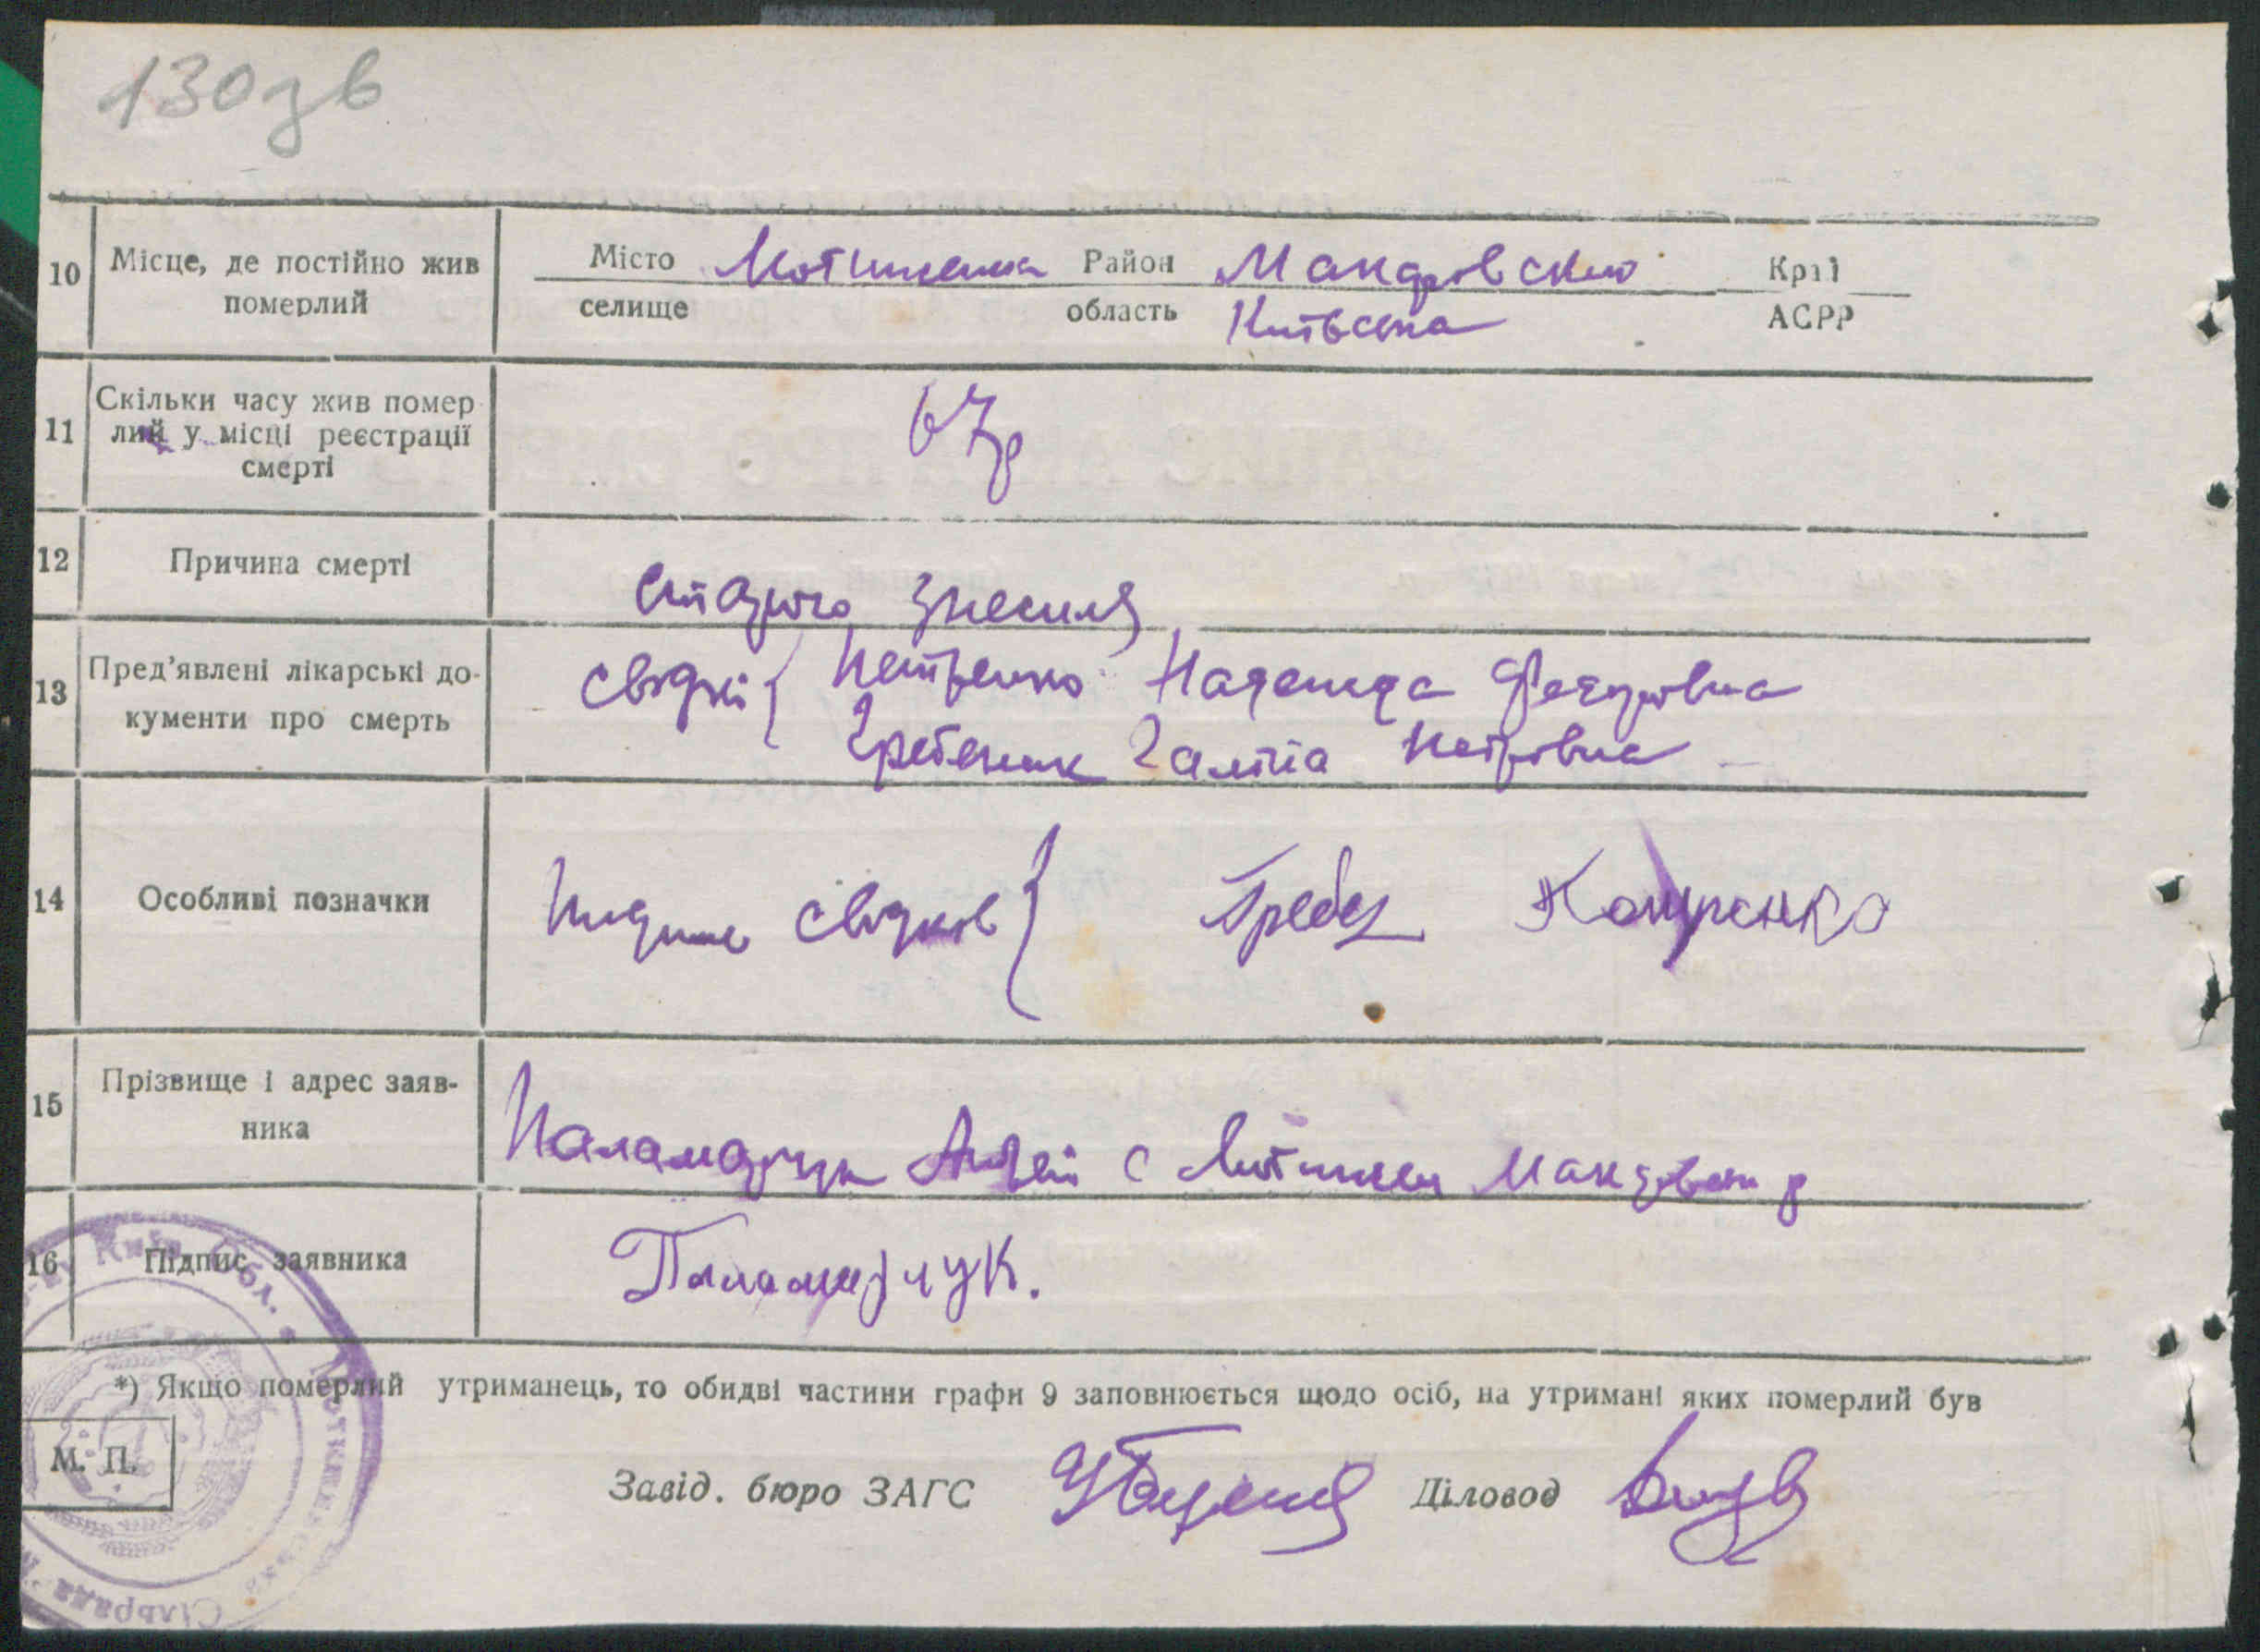 130зв
10 Місце, де постійно жив померлий
Місто Мотижинка Район Макаровский Край
селище область Київська АСРР
11 Скільки часу жив помер
лий у місці реєстрації
смерті
67р
12 Причина смерті
старче знесиля
13 Пред'явлені лікарські до-
кументи про смерть
свідкі { Петренко Надежда Федоровна
Гребеник Галина Петровна
14 Особливі позначки
свідков } Гребе
15 Прізвище і адрес заяв-
ника
Паламарчук Андрей с Макаровськ р
16 Підпис заявника
Паламарчук.
*) Якщо померлий утриманець, то обидві частини графи 9 заповнюється щодо осіб, на утримані яких померлий був
М. П.
Завід. бюро ЗАГС Діловод
Київ. Обл.
Сільрада